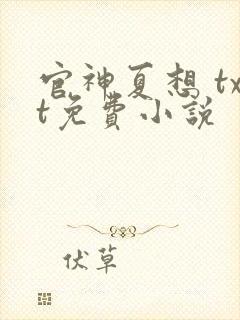 官神夏想 tx
t免費小說
伏草